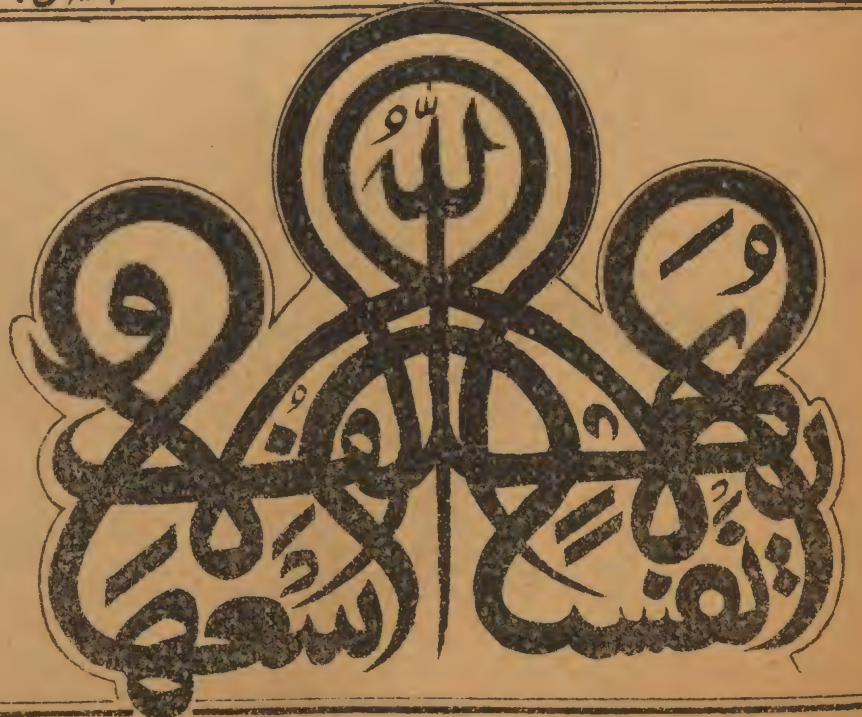 لا يكلف اللّٰهُ نفسًا إلا وسعَهَا